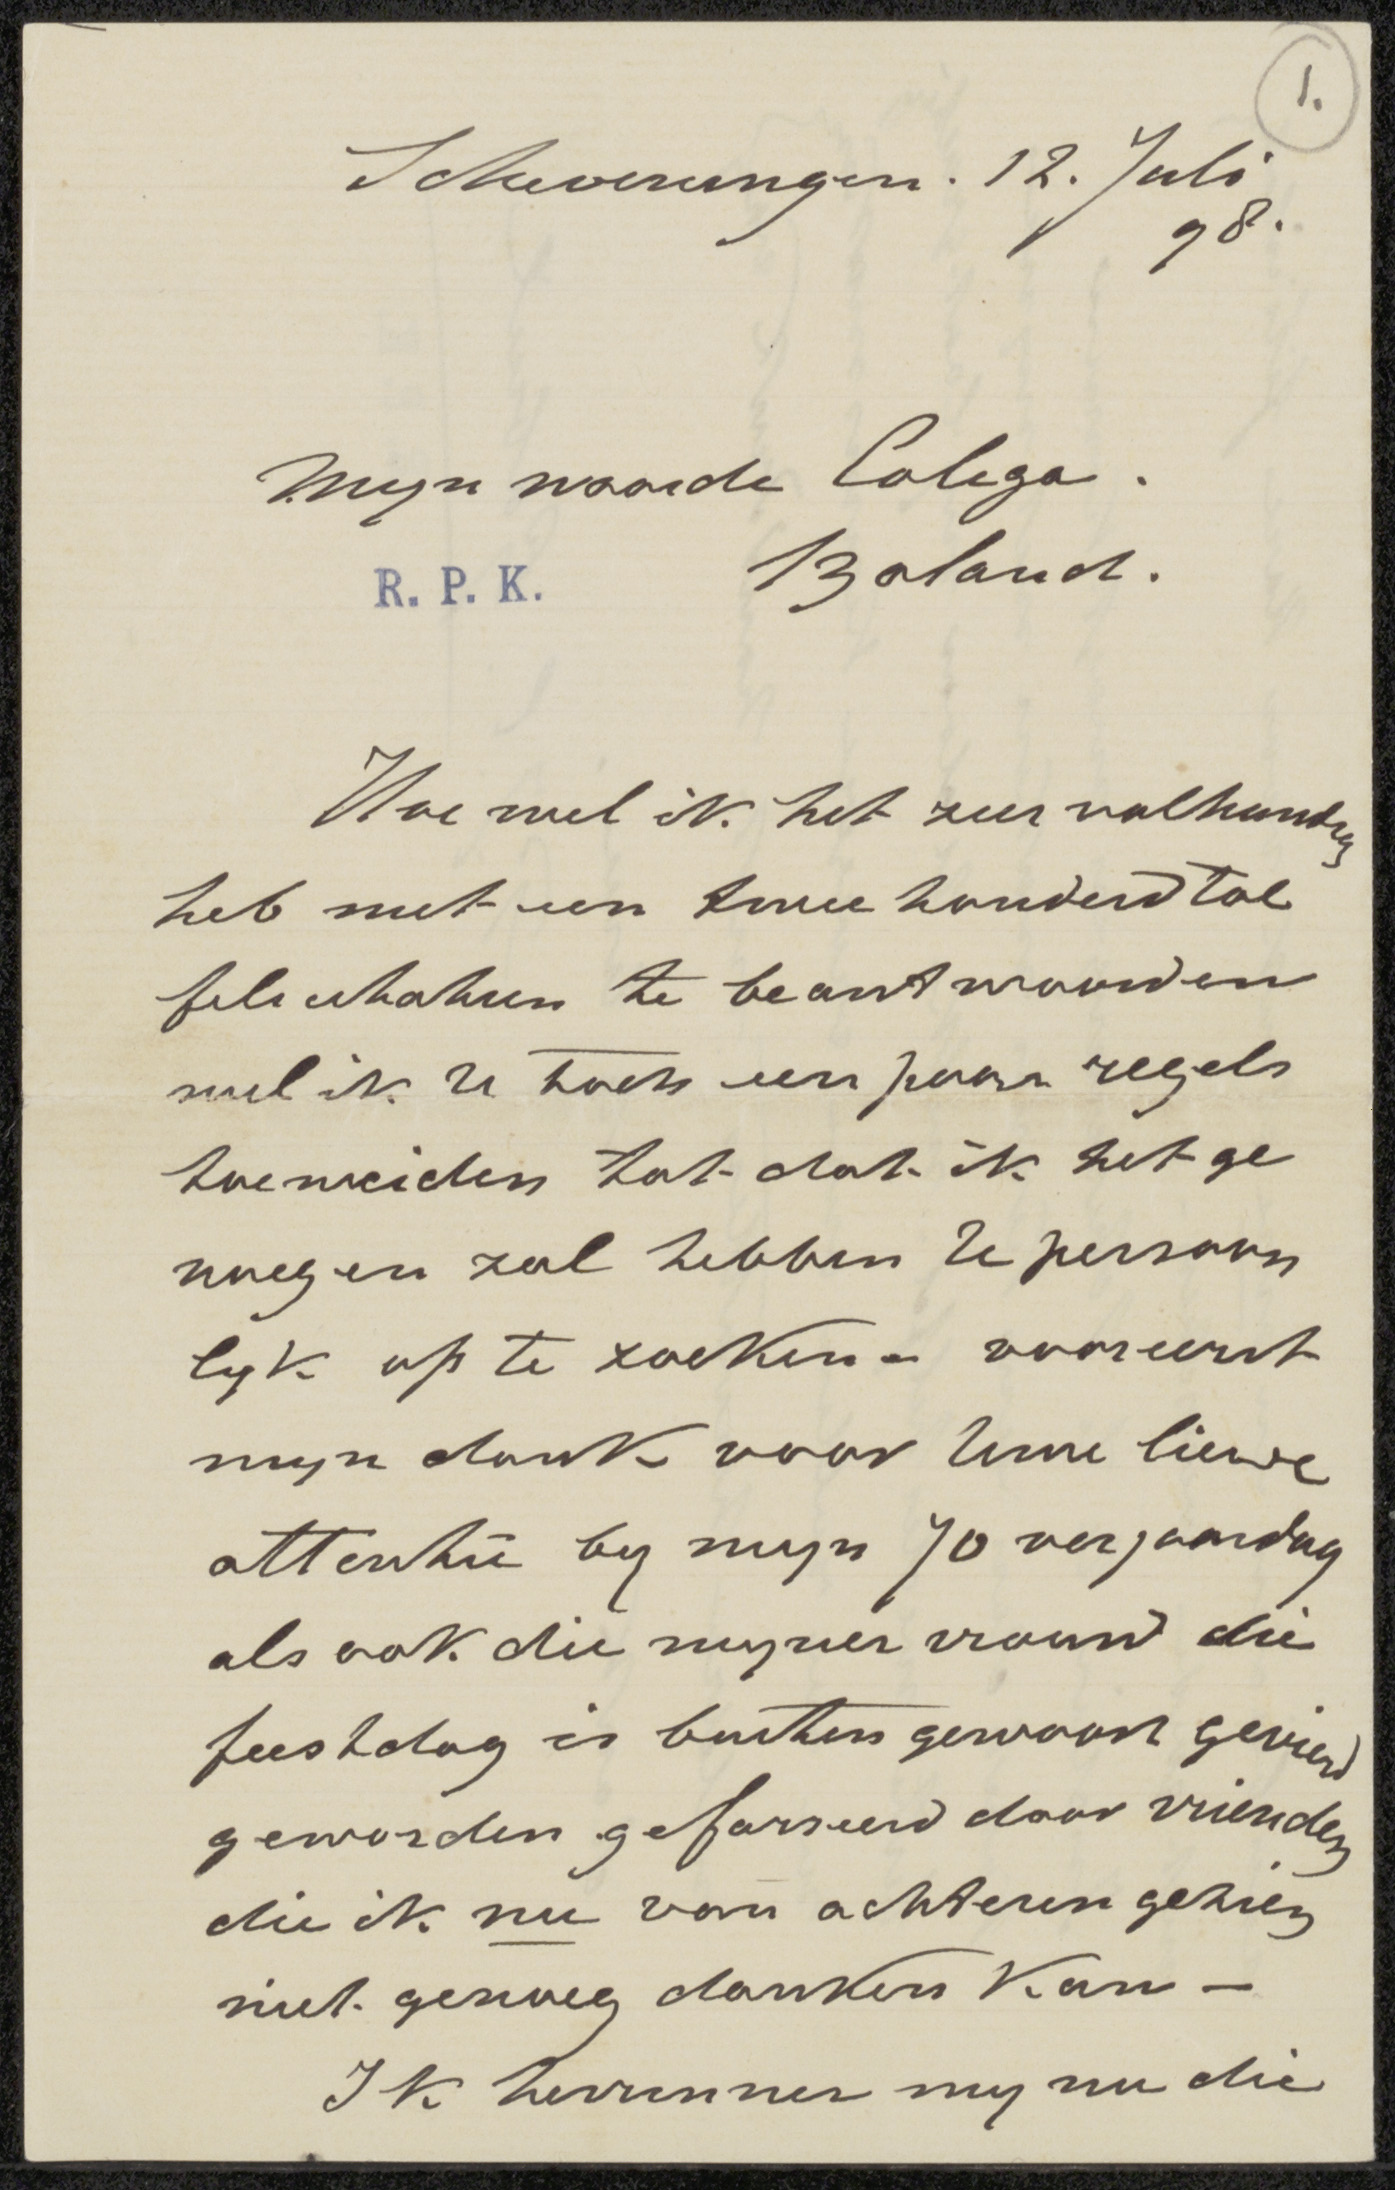 1.
Scheveningen. 12. Juli
98.
Mijn waarde Colega.
R. P. K.
Boland.
Hoe wel ik het zeer volhandig
heb met een twee honderd tal
felicitatien te beantwoorden
wil ik U toch een paar regels
toeweiden tot dat ik het ge
noegen zal hebben U persoon
lijk op te zoeken - vooreerst
mijn dank voor Uwe lieve
attentie bij mijn 70 verjaardag
als ook die mijner vrouw die
feestdag is buitengewoon gevierd
geworden geforseerd door vrienden
die ik nu van achteren gezien
niet genoeg danken kan -
Ik herrinner mij nu die